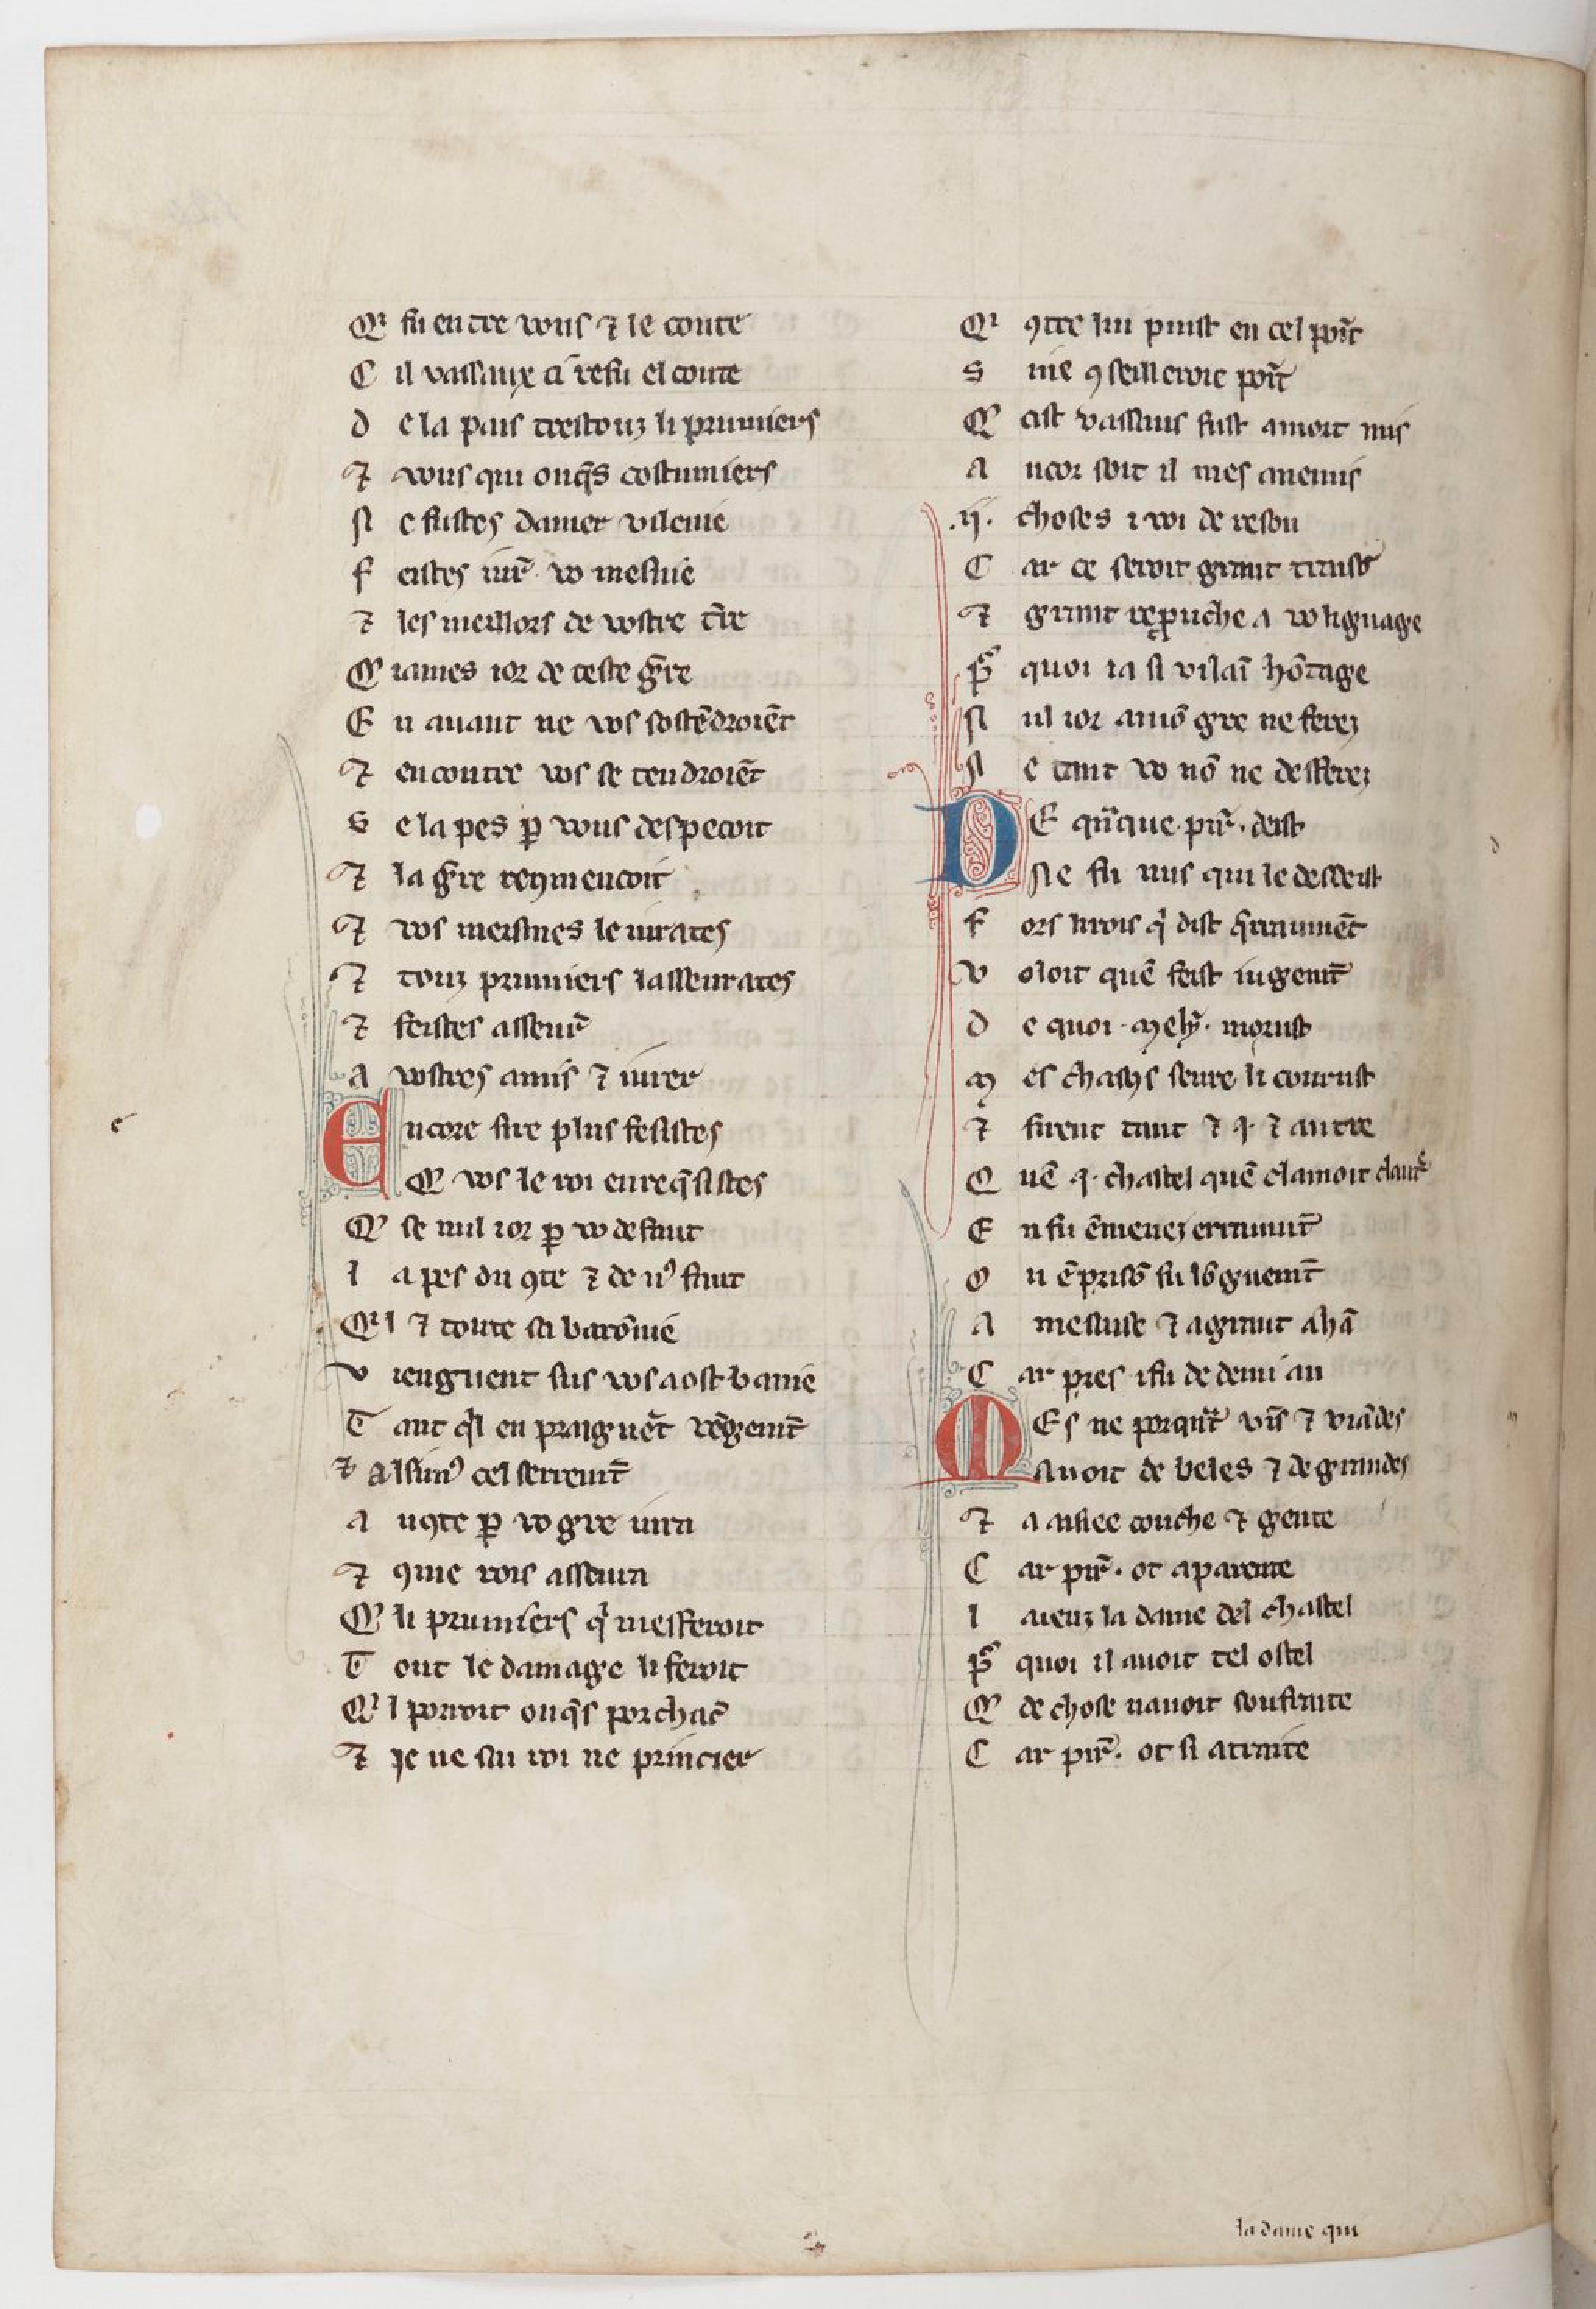 Qi fu entre vous ⁊ le conte
C il vassaux ci refu el conte
d e la pais trestouz li prumiers
⁊ vous qui onq̃s costumiers
N e fustes damer vilenie
f eistes iur̃ vo mesnie
⁊ les meillors de vostre t̃re
Q' iames ior de ceste g̃re
E n auant ne vos sostẽdroiẽt
⁊ encontre vos se tendroiẽt
S e la pes ꝑ vous despecoit
⁊ la g̃re reꝯmencoit
⁊ vos meismes le iurates
⁊ touz prumiers lasseurates
⁊ feistes asseur̃
A vostres amis ⁊ iurer
Encore sire plus fesistes
Q' vos le roi en req̃sistes
Q' se nul ior ꝑ vo defaut
l a pes du ꝯte ⁊ de nꝰ faut
Qi l ⁊ toute sa barõnie
v iengnent sus vos a ost banie
T ant q̃l en praignẽt vẽgemt̃
⁊ alsimꝰ cel serremt̃
A u ꝯte ꝑ vo gre iura
⁊ ꝯme rois asseura
Q' li prumiers q̃ mesferoit
T out le damage li feroit
Qi l porroit onq̃s porchac̃
⁊ Je ne sai roi ne princier
Qi ꝯtre lui puist en cel poĩt
S nie ꝯseilleroie poĩt
Q' cist vassaus fust a mort mis
A ncor soit il mes anemis
.ij. choses i voi de reson
C ar ce seroit grant traisõ
⁊ grant reprouche a vo lignage
P̃ quoi ia si vilaĩ hõtage
N ul ior a mõ gre ne ferez
N e tant vo nõ ne desferez
DE qñque .pir̃. deist
Ne fu nus qui le desdeist
f ors li rois q̃ dist q̃raumẽt
v oloit quẽ feist iugemt̃
d e quoi .mely̾. morust
m es chascũs seure li courust
⁊ firent tant ⁊ .i. ⁊ autre
Q uẽ .i. chastel quẽ clamoit clautr̃
E n fu ẽmenez erraumt̃
O u ẽ prisõ fu lõguemt̃
A mesaise ⁊ a grant ahã
C ar pres i fu de demi an
MEs ne porqñt vĩs ⁊ viãdes
Auoit de beles ⁊ de grandes
⁊ a aisiee couche ⁊ gente
C ar pir̃. ot a parente
l aieuz la dame del chastel
P̃ quoi il auoit tel ostel
Q' de chose nauoit soufraite
C ar pir̃. ot si atraite
la dame qui